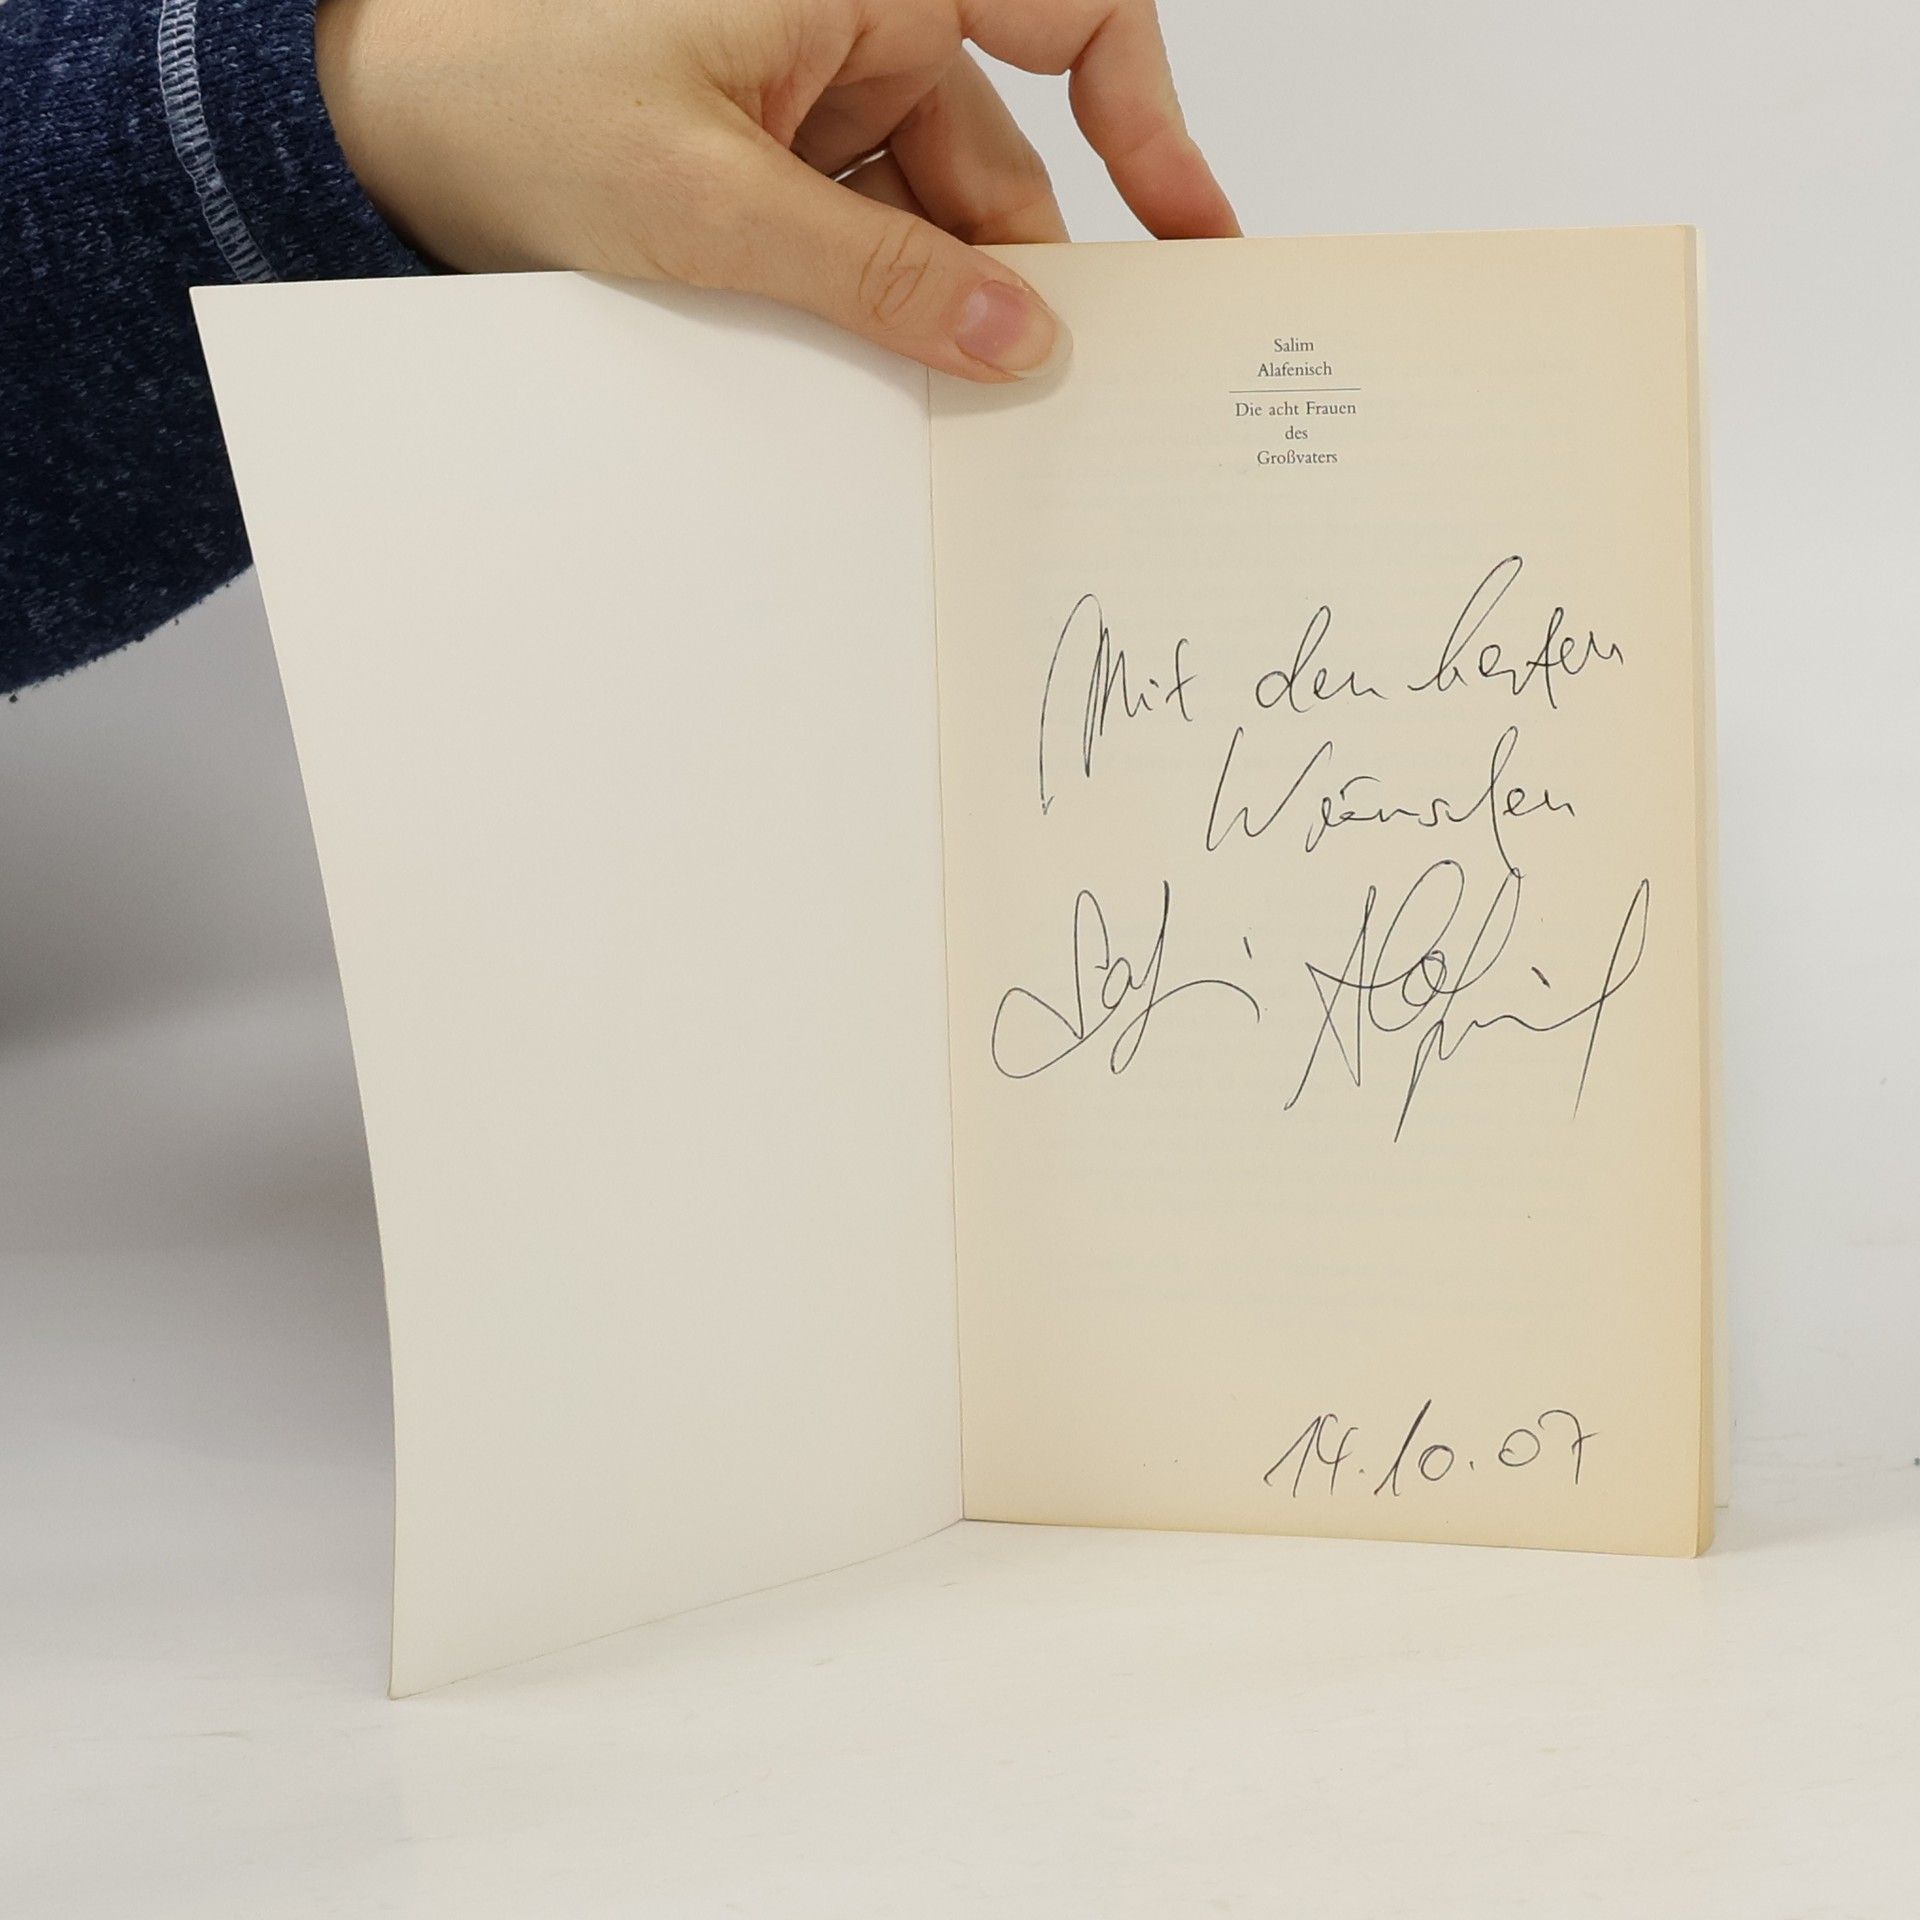 Salim
Alafenisch
Die acht Frauen
des
Großvaters
Mit den besten
Wünschen
Salim Alafenisch
14.10.07